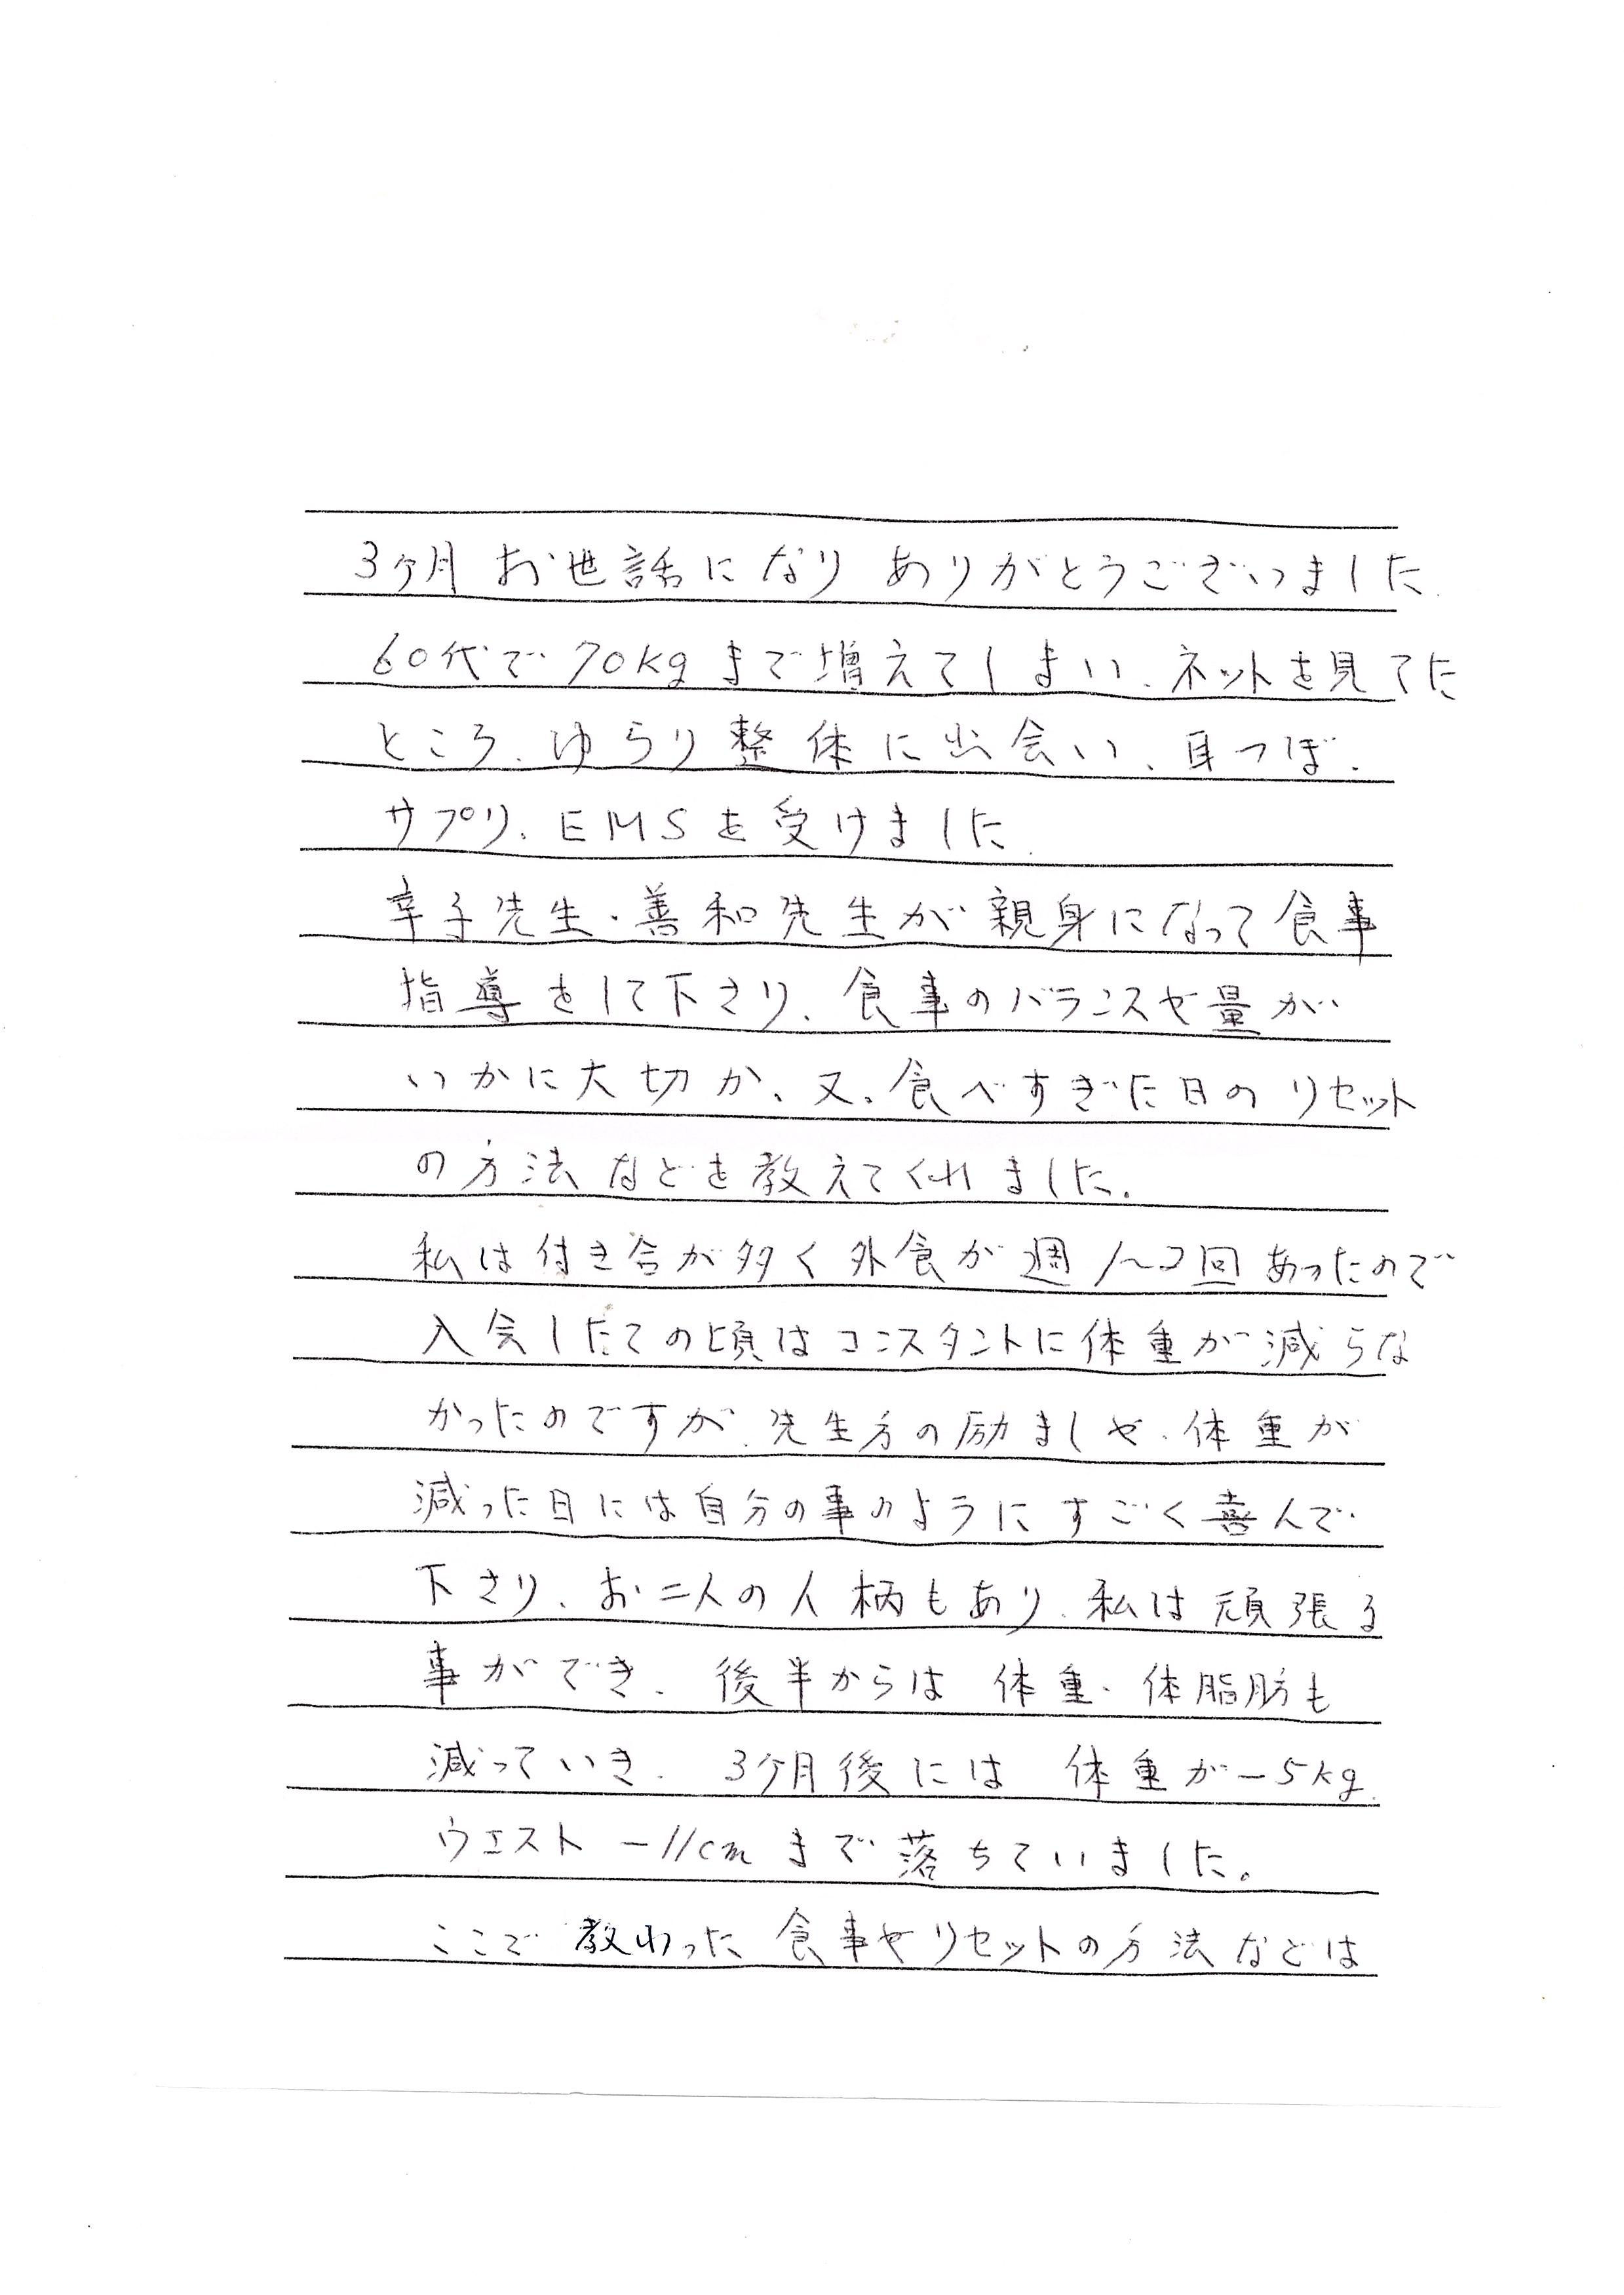 3ケ月 お世話になり ありがとうございました.
60代で 70kgまで増えてしまい、ネットを見てた
ところ、ゆらり整体に出会い、耳つぼ、
サプリ、EMSを受けました.
幸子先生・善和先生が親身になって食事
指導をして下さり、食事のバランスや量が
いかに大切か、又、食べすぎた日のリセット
の方法などを教えてくれました。
私は付き合が多く外食が週1〜2回あったので
入会したての頃はコンスタントに体重が減らな
かったのですが、先生方の励ましや、体重が
減った日には自分の事のようにすごく喜んで
下さり、お二人の人柄もあり、私は頑張る
事ができ、後半からは 体重・体脂肪も
減っていき、3ケ月後には 体重が−5kg、
ウエスト −11cmまで落ちていました。
ここで 教わった 食事やリセットの方法などは